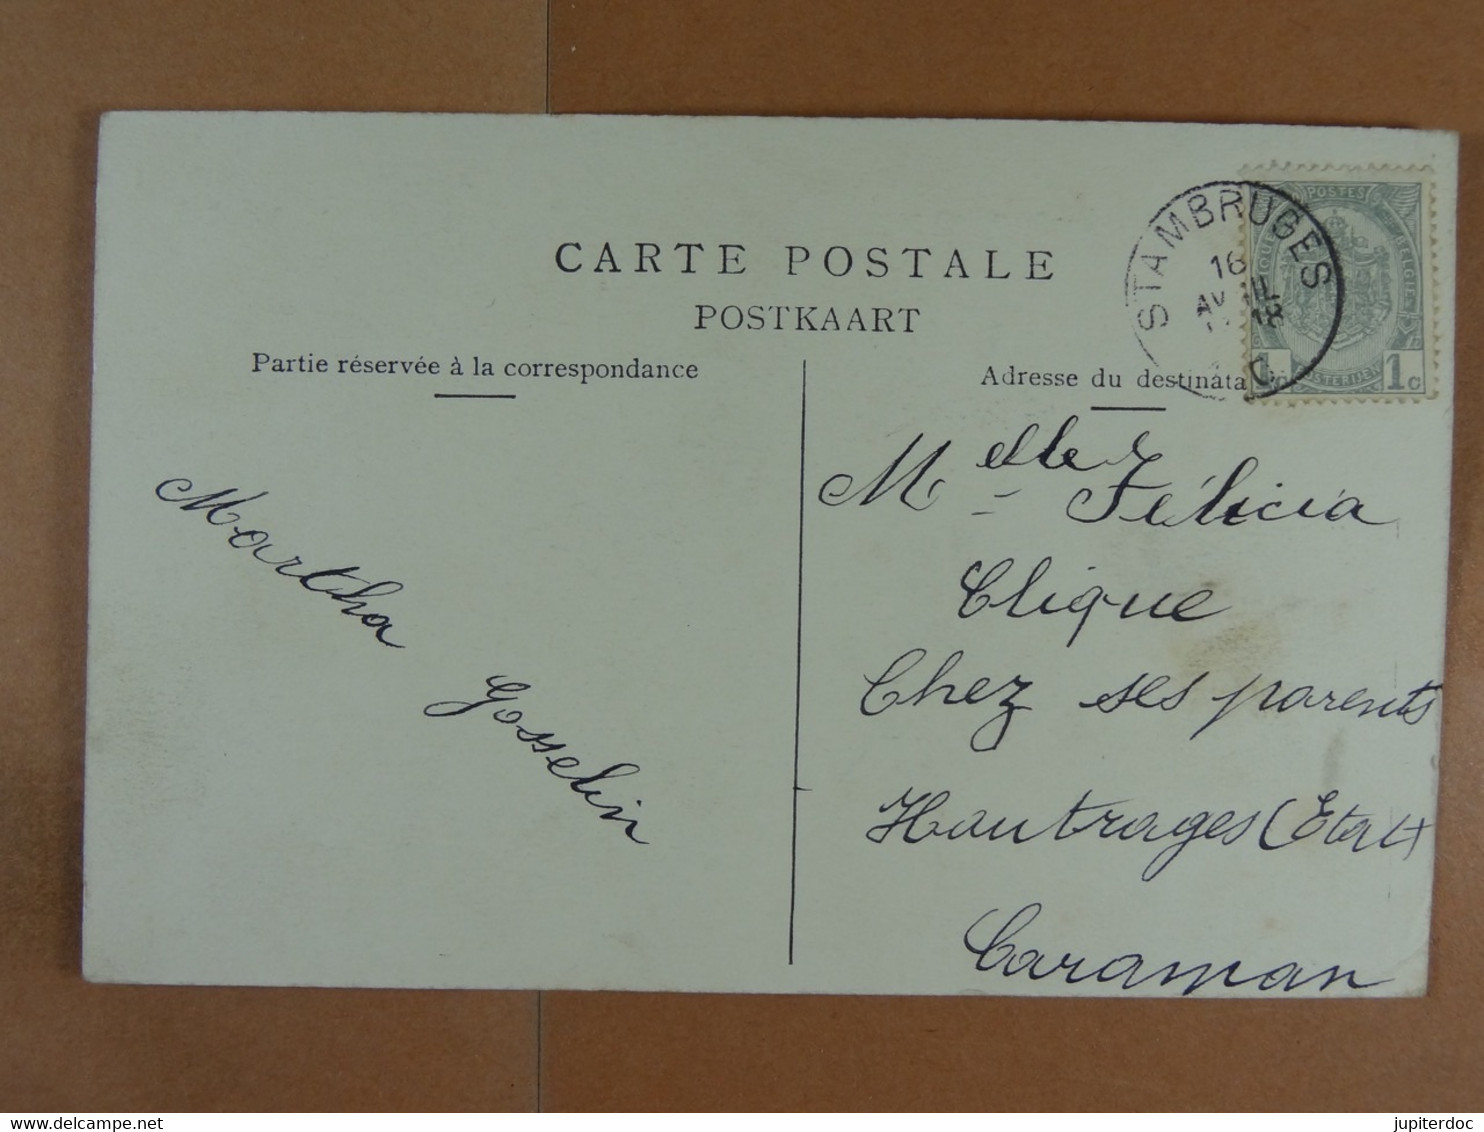 CARTE POSTALE
POSTKAART
Partie réservée à la correspondance
Adresse du destinata
STAMBRUGES
16
AVRIL
18
POSTES
BELGIË
1c
1c
Melle Félicia
Clique
Chez ses parents
Hautrages (Etat)
Caraman
Martha
Gosselin
jupiterdoc